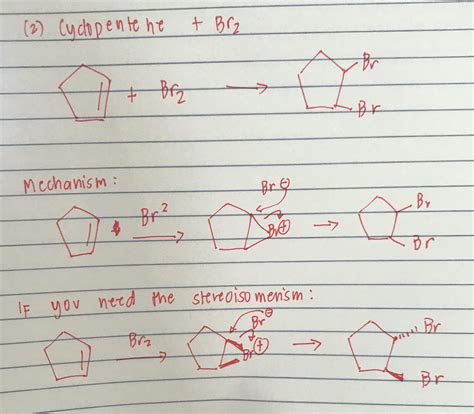 (2) Cyclopentene + Br2
+ Br2 → Br
Br
Mechanism:
Br⊖
Br2 → Br⊕ → Br
Br
IF you need the stereoisomerism:
Br⊖
Br2 → Br⊕ → Br
Br